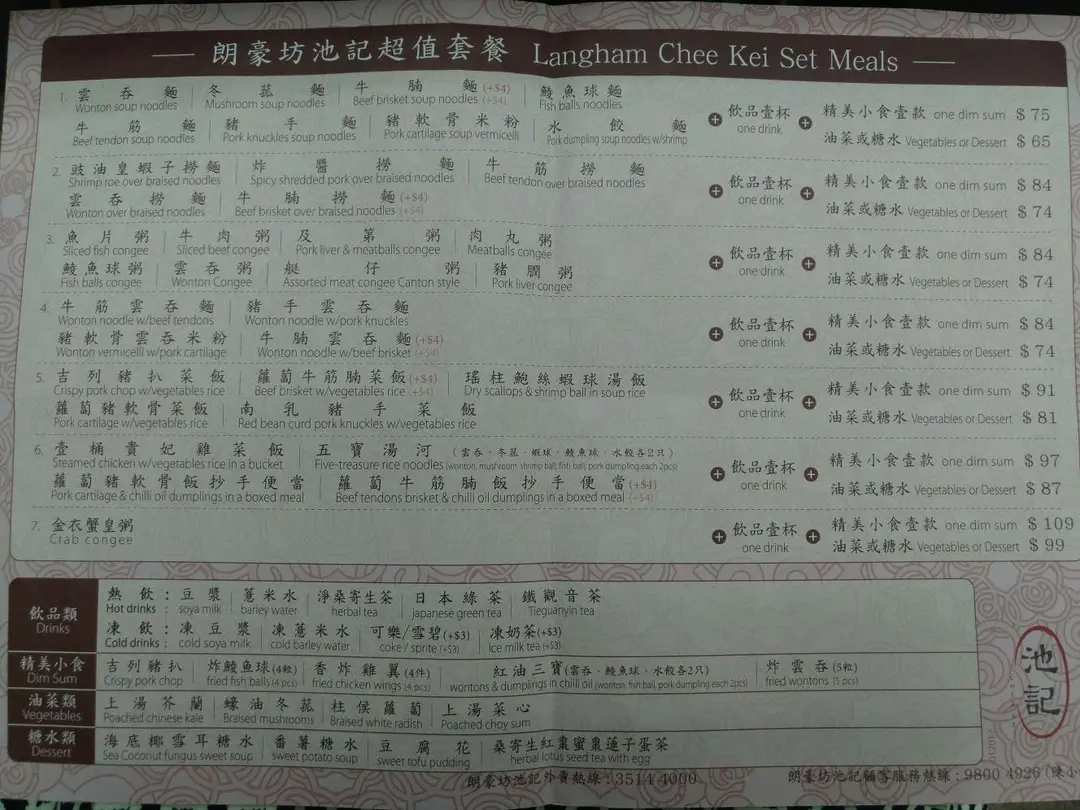 朗豪坊池記超值套餐 Langham Chee Kei Set Meals
1. 雲吞麵 冬菰麵 牛腩麵(+$4) 鯪魚球麵
Wonton soup noodles Mushroom soup noodles Beef brisket soup noodles (+$4) Fish balls noodles
牛筋麵 豬手麵 豬軟骨米粉 水餃麵
Beef tendon soup noodles Pork knuckles soup noodles Pork cartilage soup vermicelli Pork dumpling soup noodles w/shrimp
+ 飲品壹杯 + 精美小食壹款 one dim sum $ 75
one drink 油菜或糖水 Vegetables or Dessert $ 65
2. 豉油皇蝦子撈麵 炸醬撈麵 牛筋撈麵
Shrimp roe over braised noodles Spicy shredded pork over braised noodles Beef tendon over braised noodles
雲吞撈麵 牛腩撈麵(+$4)
Wonton over braised noodles Beef brisket over braised noodles (+$4)
+ 飲品壹杯 + 精美小食壹款 one dim sum $ 84
one drink 油菜或糖水 Vegetables or Dessert $ 74
3. 魚片粥 牛肉粥 及第粥 肉丸粥
Sliced fish congee Sliced beef congee Pork liver & meatballs congee Meatballs congee
鯪魚球粥 雲吞粥 艇仔粥 豬膶粥
Fish balls congee Wonton Congee Assorted meat congee Canton style Pork liver congee
+ 飲品壹杯 + 精美小食壹款 one dim sum $ 84
one drink 油菜或糖水 Vegetables or Dessert $ 74
4. 牛筋雲吞麵 豬手雲吞麵
Wonton noodle w/beef tendons Wonton noodle w/pork knuckles
豬軟骨雲吞米粉 牛腩雲吞麵(+$4)
Wonton vermicelli w/pork cartilage Wonton noodle w/beef brisket (+$4)
+ 飲品壹杯 + 精美小食壹款 one dim sum $ 84
one drink 油菜或糖水 Vegetables or Dessert $ 74
5. 吉列豬扒菜飯 蘿蔔牛筋腩菜飯(+$4) 瑤柱鮑絲蝦球湯飯
Crispy pork chop w/vegetables rice Beef brisket w/vegetables rice (+$4) Dry scallops & shrimp ball in soup rice
蘿蔔豬軟骨菜飯 南乳豬手菜飯
Pork cartilage w/vegetables rice Red bean curd pork knuckles w/vegetables rice
+ 飲品壹杯 + 精美小食壹款 one dim sum $ 91
one drink 油菜或糖水 Vegetables or Dessert $ 81
6. 壹桶貴妃雞菜飯 五寶湯河(雲吞、冬菰、蝦球、鯪魚球、水餃各2只)
Steamed chicken w/vegetables rice in a bucket Five-treasure rice noodles (wonton, mushroom, shrimp ball, fish ball, pork dumpling each 2pcs)
蘿蔔豬軟骨飯抄手便當 蘿蔔牛筋腩飯抄手便當(+$4)
Pork cartilage & chilli oil dumplings in a boxed meal Beef tendons brisket & chilli oil dumplings in a boxed meal (+$4)
+ 飲品壹杯 + 精美小食壹款 one dim sum $ 97
one drink 油菜或糖水 Vegetables or Dessert $ 87
7. 金衣蟹皇粥
Crab congee
+ 飲品壹杯 + 精美小食壹款 one dim sum $ 109
one drink 油菜或糖水 Vegetables or Dessert $ 99
飲品類
Drinks
熱飲：豆漿 薏米水 淨桑寄生茶 日本綠茶 鐵觀音茶
Hot drinks : soya milk barley water herbal tea japanese green tea Tieguanyin tea
凍飲：凍豆漿 凍薏米水 可樂/雪碧(+$3) 凍奶茶(+$3)
Cold drinks : cold soya milk cold barley water coke / sprite (+$3) Ice milk tea (+$3)
精美小食
Dim Sum
吉列豬扒 炸鯪魚球(4粒) 香炸雞翼(4件) 紅油三寶(雲吞、鯪魚球、水餃各2只) 炸雲吞(5粒)
Crispy pork chop fried fish balls (4 pcs) fried chicken wings (4 pcs) wontons & dumplings in chilli oil (wonton, fish ball, pork dumpling each 2pcs) fried wontons (5 pcs)
油菜類
Vegetables
上湯芥蘭 蠔油冬菰 柱侯蘿蔔 上湯菜心
Poached chinese kale Braised mushrooms Braised white radish Poached choy sum
糖水類
Dessert
海底椰雪耳糖水 番薯糖水 豆腐花 桑寄生紅棗蜜棗蓮子蛋茶
Sea Coconut fungus sweet soup sweet potato soup sweet tofu pudding herbal lotus seed tea with egg
池記
朗豪坊池記外賣熱線：3514 4000
朗豪坊池記顧客服務熱線：9800 4926